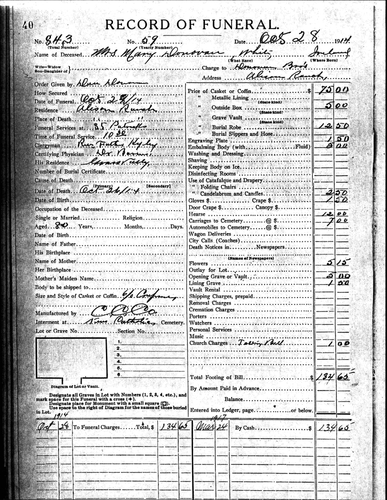 40
RECORD OF FUNERAL.
No. 843 No. 59 Date, Oct 28 1914
(Total Number) (Yearly Number)
Mrs Mary Donovan White Ireland
Widow-Wife (What Race) (Where Born)
Son-Daughter of
Charge to Donovan Bros
Address Alison Ranch
Order Given by Dan Don
How Secured
Date of Funeral Oct 28/14
Residence Alison Ranch
Place of Death "
Funeral Services at
Time of Funeral Service 10
Clergyman
Certifying Physician
His Residence Grass Valley
Number of Burial Certificate
Cause of Death
Date of Death Oct 26/14 (Secondary)
Occupation of the Deceased
Single or Married Religion
Aged 80 Years, Months, Days
Date of Birth
Name of Father
His Birthplace
Name of Mother
Her Birthplace
Mother's Maiden Name
Body to be shipped to
Size and Style of Casket or Coffin
Manufactured by C C Co
Interment at New Catholic Cemetery.
Lot or Grave No. Section No.
Diagram of Lot or Vault.
Designate all Graves in Lot with Numbers (1, 2, 3, 4, etc.), and mark space for this Funeral with a cross (+).
Designate place for Monument with a small square (☐).
Use space to the right of Diagram for the names of those buried in Lot.
Price of Casket or Coffin $ 75 00
" Metallic Lining
" Outside Box 5 00
" Grave Vault
" Burial Robe 12 50
" Burial Slippers and Hose
Engraving Plate 1 50
Embalming Body (with Fluid) 5 00
Washing and Dressing
Shaving
Keeping Body on Ice
Disinfecting Rooms
Use of Catafalque and Drapery
" Folding Chairs
" Candelabrum and Candles 2 50
Gloves $ Crape $ 1 50
Door Crape $ Canopy $
Hearse 12 00
Carriages to Cemetery @ $ 7 00
Automobiles to Cemetery @ $
Wagon Deliveries
City Calls (Coaches)
Death Notices in Newspapers
(Names of Newspapers)
Flowers 5 15
Outlay for Lot
Opening Grave or Vault 5 00
Lining Grave 1 50
Vault Rental
Shipping Charges, prepaid
Removal Charges
Cremation Charges
Porters
Watchers
Personal Services
Music
Church Charges Tolling Bell 1 00
Total Footing of Bill $ 134 65
By Amount Paid in Advance
Balance
Entered into Ledger, page or below.
1914 Oct 28 To Funeral Charges $ 134 65
24 By Cash $ 134 65